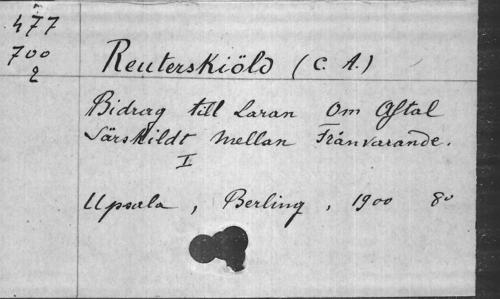 477
700
2
Reuterskiöld (C. A.)
Bidrag till Laran Om Aftal
Särskildt Mellan Frånvarande.
I
Upsala, Berling, 1900 80